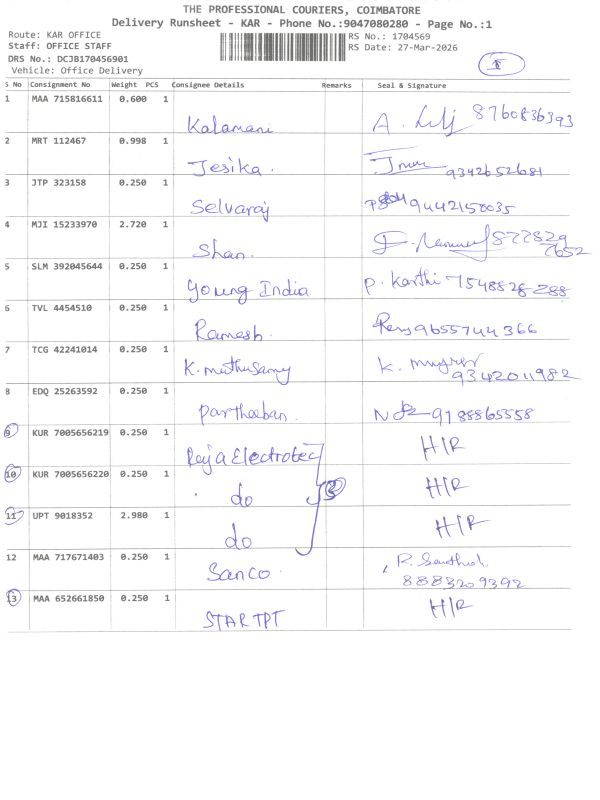 THE PROFESSIONAL COURIERS, COIMBATORE
Delivery Runsheet - KAR - Phone No.:9047080280 - Page No.:1
Route: KAR OFFICE
Staff: OFFICE STAFF
DRS No.: DCJB170456901
Vehicle: Office Delivery
RS No.: 1704569
RS Date: 27-Mar-2026
S No Consignment No Weight PCS Consignee Details Remarks Seal & Signature
1 MAA 715816611 0.600 1 Kalamani A. 8760836393
2 MRT 112467 0.998 1 Jesika. 9342652681
3 JTP 323158 0.250 1 Selvaraj 9442150035
4 MJI 15233970 2.720 1 Shan.
5 SLM 392045644 0.250 1 Young India P. Karthi 7548828288
6 TVL 4454510 0.250 1 Ramesh. 9655744366
7 TCG 42241014 0.250 1 K. muthusamy K. 9342011982
8 EDQ 25263592 0.250 1 Partheeban. 9188865558
9 KUR 7005656219 0.250 1 Raja Electrotec H/R
10 KUR 7005656220 0.250 1 do 3 H/R
11 UPT 9018352 2.980 1 do H/R
12 MAA 717671403 0.250 1 Sanco. R. Senthil 8883209392
13 MAA 652661850 0.250 1 STAR TPT H/R